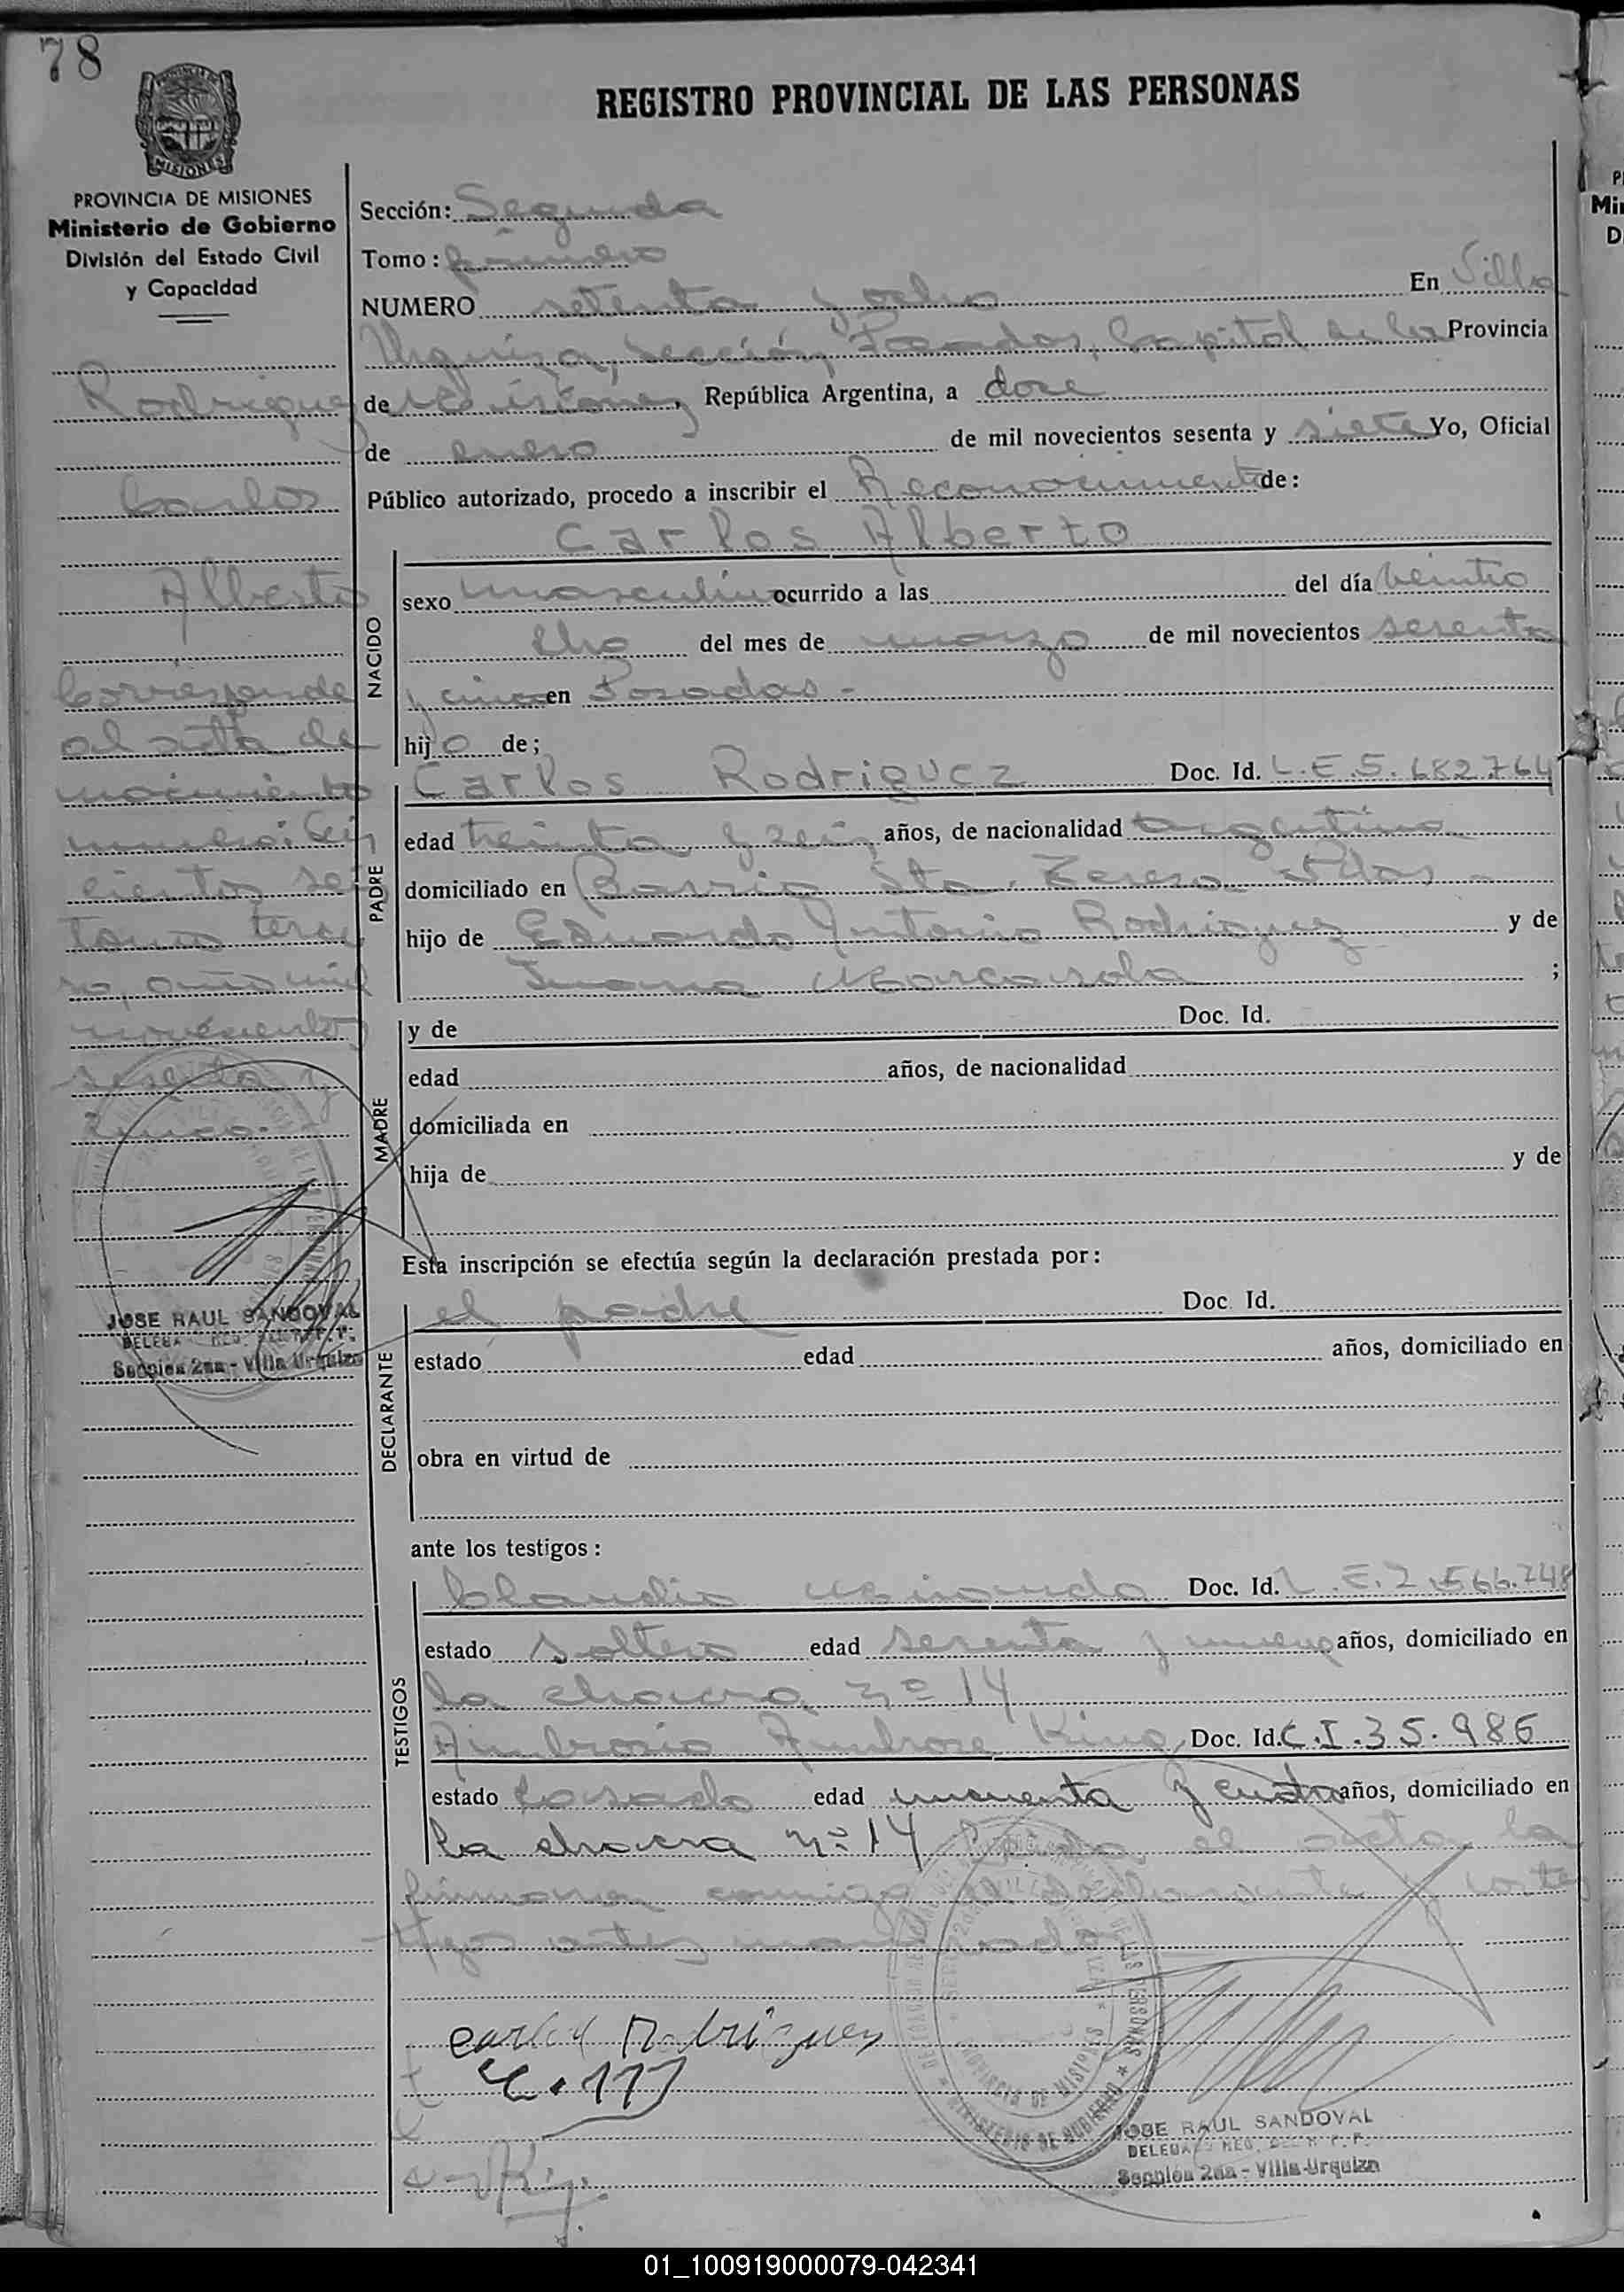 78
PROVINCIA DE MISIONES
REGISTRO PROVINCIAL DE LAS PERSONAS
PROVINCIA DE MISIONES
Ministerio de Gobierno
División del Estado Civil
y Capacidad
Rodriguez
Carlos
Alberto
Corresponde
al acta de
nacimiento
numero: Seis
cientos seis
tomo terce
ro, año mil
novecientos
sesenta y
cinco.
JOSE RAUL SANDOVAL
Sección 2da - Villa Urquiza
Sección: Segunda
Tomo: primero
NUMERO setenta y ocho En Villa
Urquiza, Sección Posadas, Capital de la Provincia
de Misiones, República Argentina, a doce
de enero de mil novecientos sesenta y siete Yo, Oficial
Público autorizado, procedo a inscribir el Reconocimiento de:
Carlos Alberto
NACIDO
sexo masculino ocurrido a las del día veintio
cho del mes de marzo de mil novecientos sesenta
y cinco en Posadas -
hijo de;
PADRE
Carlos Rodriguez Doc. Id. L.E.5.682.764
edad treinta y seis años, de nacionalidad argentino
domiciliado en Barrio Sta. Teresa Pdas -
hijo de Eduardo Antonio Rodriguez y de
Juana ;
MADRE
y de Doc. Id.
edad años, de nacionalidad
domiciliada en
hija de y de
Esta inscripción se efectúa según la declaración prestada por:
DECLARANTE
el padre Doc. Id.
estado edad años, domiciliado en
obra en virtud de
ante los testigos:
TESTIGOS
Claudio Miranda Doc. Id. L.E.2.566.748
estado Soltero edad sesenta y nueve años, domiciliado en
la chacra nº 14
Ambrosio Ambrose King, Doc. Id. C.I.35.986
estado Casado edad cincuenta y cuatro años, domiciliado en
la chacra nº 14 el acta la
firmaron conmigo el declarante y los tes
tigos antes mencionados
Carlos Rodriguez
JOSE RAUL SANDOVAL
Sección 2da - Villa Urquiza
01_100919000079-042341